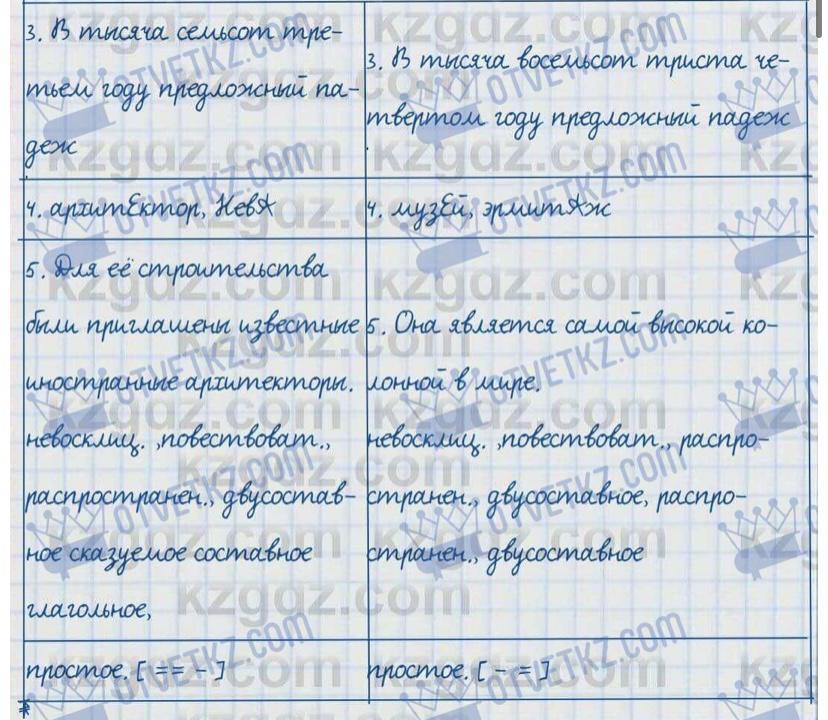 3. В тысяча семьсот тре-
тьем году предложный па-
деж
3. В тысяча восемьсот триста че-
твертом году предложный падеж
4. архитЕктор, НевА
4. музЕй, эрмитАж
5. Для её строительства
были приглашены известные
иностранные архитекторы.
невосклиц. ,повествоват.,
распространен., двусостав-
ное сказуемое составное
глагольное,
5. Она является самой высокой ко-
лонной в мире.
невосклиц. ,повествоват., распро-
странен., двусоставное, распро-
странен., двусоставное
простое. [ == - ]
простое. [ - = ]
kzgdz.com
OTVETKZ.COM